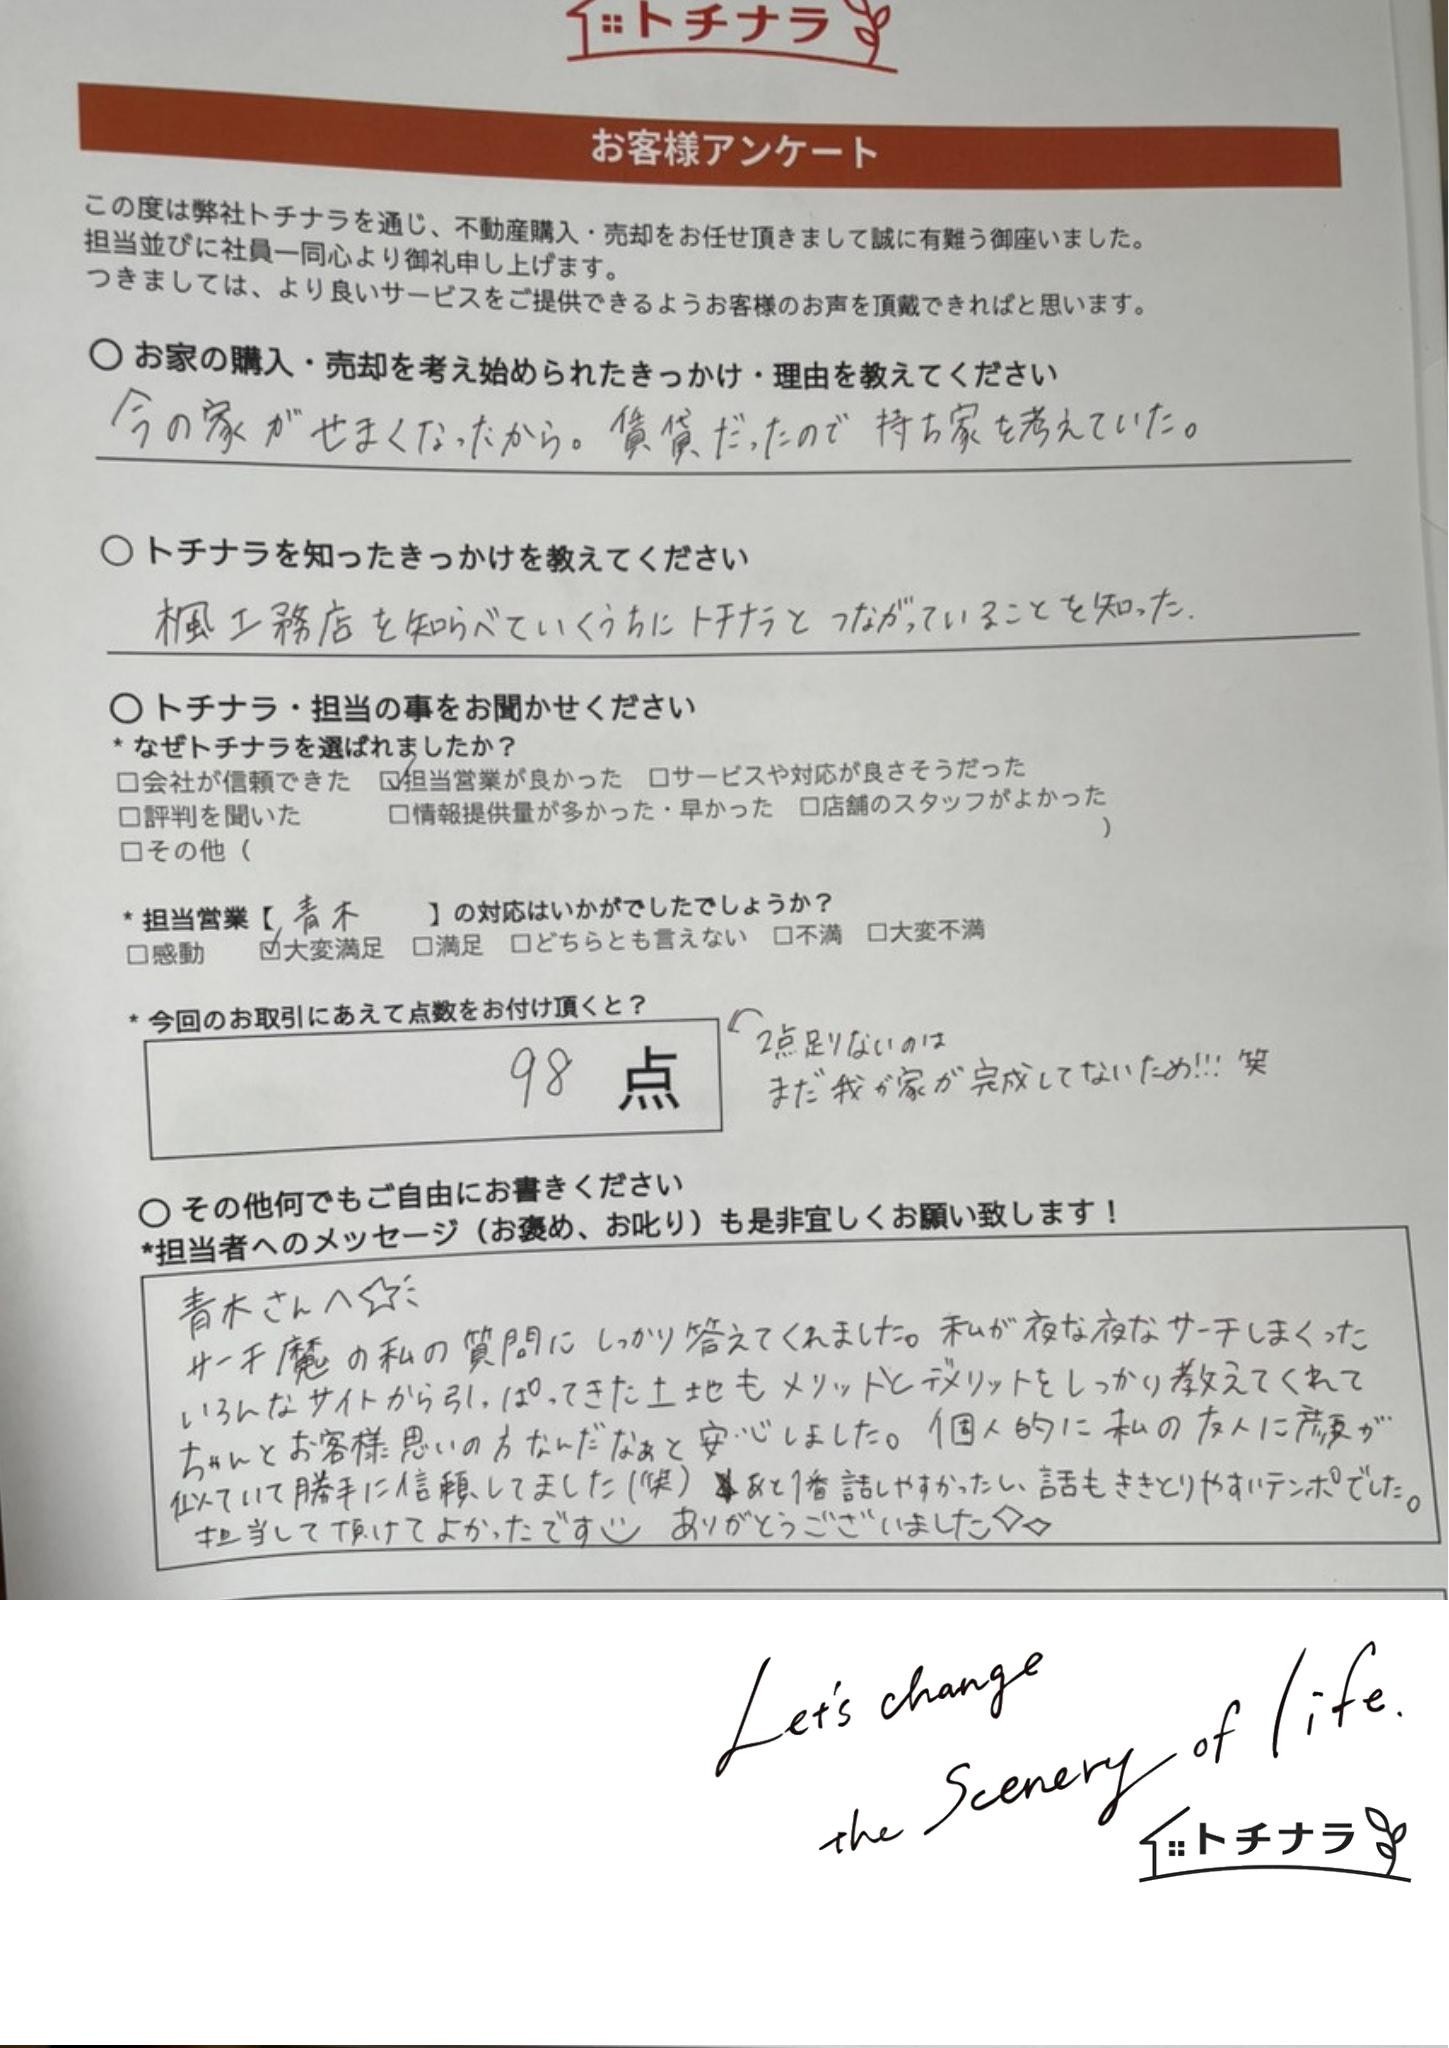 トチナラ
お客様アンケート
この度は弊社トチナラを通じ、不動産購入・売却をお任せ頂きまして誠に有難う御座いました。
担当並びに社員一同心より御礼申し上げます。
つきましては、より良いサービスをご提供できるようお客様のお声を頂戴できればと思います。
○ お家の購入・売却を考え始められたきっかけ・理由を教えてください
今の家がせまくなったから。賃貸だったので持ち家を考えていた。
○ トチナラを知ったきっかけを教えてください
楓工務店を知らべていくうちにトチナラとつながっていることを知った.
○ トチナラ・担当の事をお聞かせください
* なぜトチナラを選ばれましたか？
□会社が信頼できた ☑担当営業が良かった □サービスや対応が良さそうだった
□評判を聞いた □情報提供量が多かった・早かった □店舗のスタッフがよかった
□その他（ ）
* 担当営業【 青木 】の対応はいかがでしたでしょうか？
□感動 ☑大変満足 □満足 □どちらとも言えない □不満 □大変不満
* 今回のお取引にあえて点数をお付け頂くと？
98 点
2点足りないのは
まだ我が家が完成してないため!!! 笑
○ その他何でもご自由にお書きください
*担当者へのメッセージ（お褒め、お叱り）も是非宜しくお願い致します！
青木さんへ☆
サーチ魔の私の質問にしっかり答えてくれました。私が夜な夜なサーチしまくった
いろんなサイトから引っぱってきた土地もメリットとデメリットをしっかり教えてくれて
ちゃんとお客様思いの方なんだなぁと安心しました。個人的に私の友人に顔が
似ていて勝手に信頼してました(笑) あと1番話しやすかったし、話もききとりやすいテンポでした。
担当して頂けてよかったです ありがとうございました◇◇
Let's change
the Scenery of life.
トチナラ